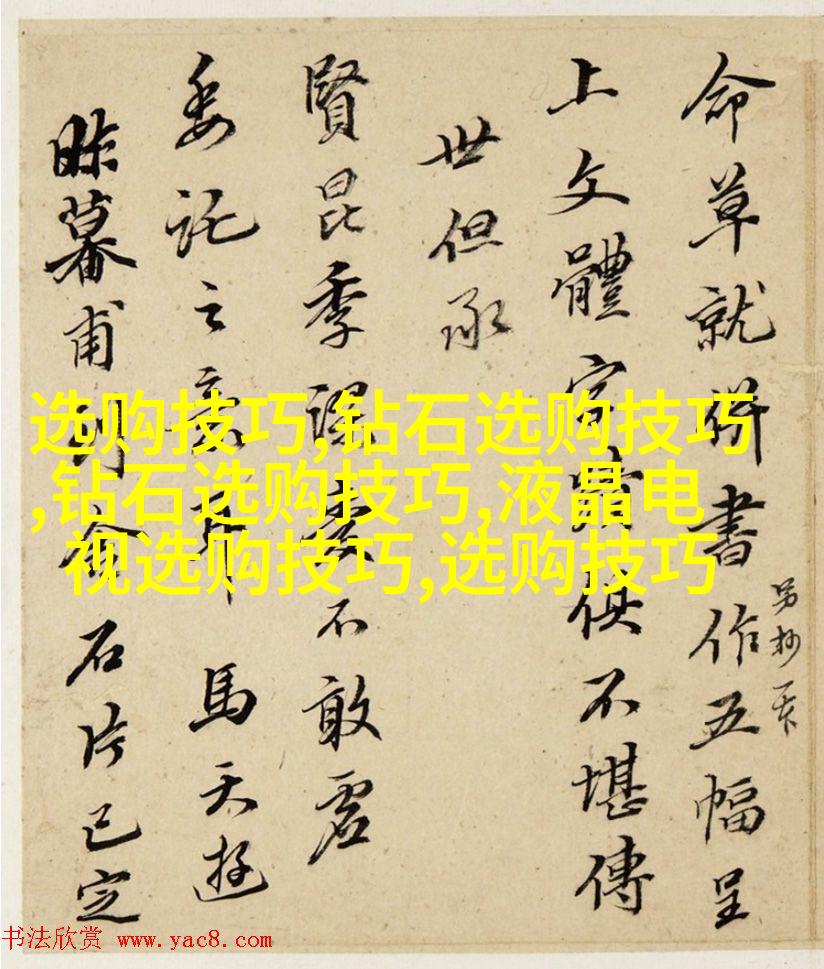 命草就併書作五幅呈
另抄
上文體字蹟俱不堪傳
世但承
賢昆季謬愛不敢虛
委託之意耳馬天遊
昨暮甫到石片已定
选购技巧,钻石选购技巧
,钻石选购技巧,液晶电
视选购技巧,选购技巧
书法欣赏 www.yac8.com